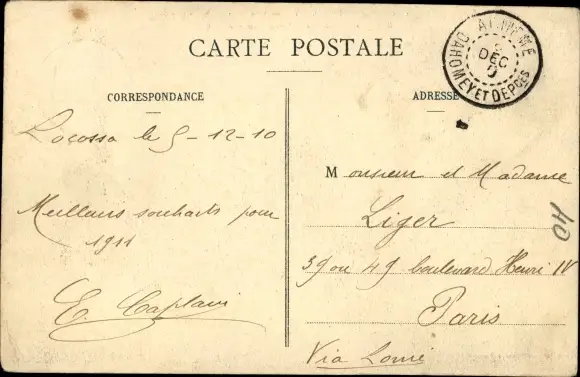 CARTE POSTALE
CORRESPONDANCE
Locossa le 5-12-10
Meilleurs souhaits pour
1911
E. Caplain
ADRESSE
Monsieur et Madame
Liger
39 ou 49 boulevard Henri IV
Paris
Via Lomé
DEC
DAHOMEY ET DEPCES
40